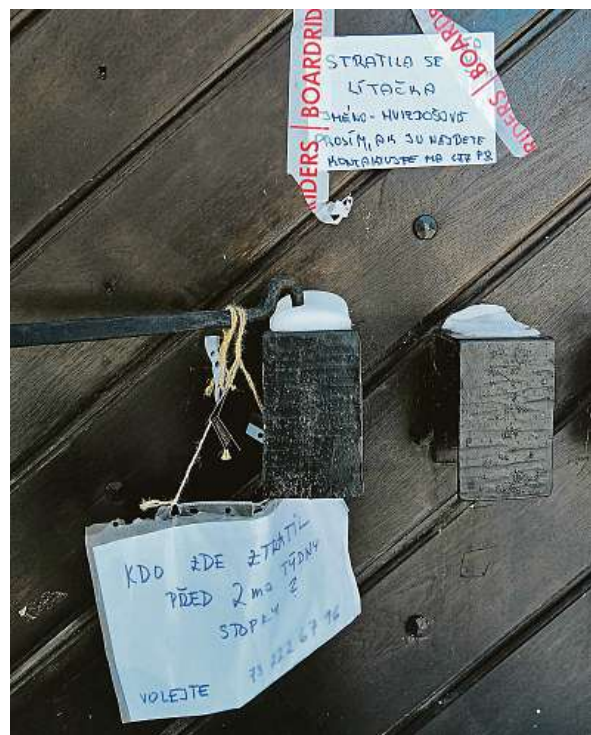 RIDERS | BOARDRID
RIDERS | BOARDR
STRATILA SE
LÍTAČKA
JMÉNO - HVIZDOŠOVÁ
PROSÍM, AK JU NÁJDETE
KONTAKUJTE NA
KDO ZDE ZTRATIL
PŘED 2ma TÝDNY
STOPKY ?
VOLEJTE 73 222 67 96